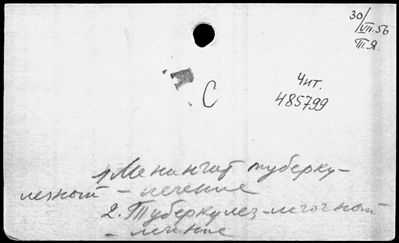 30/VII.56
П.Я.
Чит.
С
485799
1) Менингит туберку-
лезный - лечение
2. Туберкулез легочный
- лечение